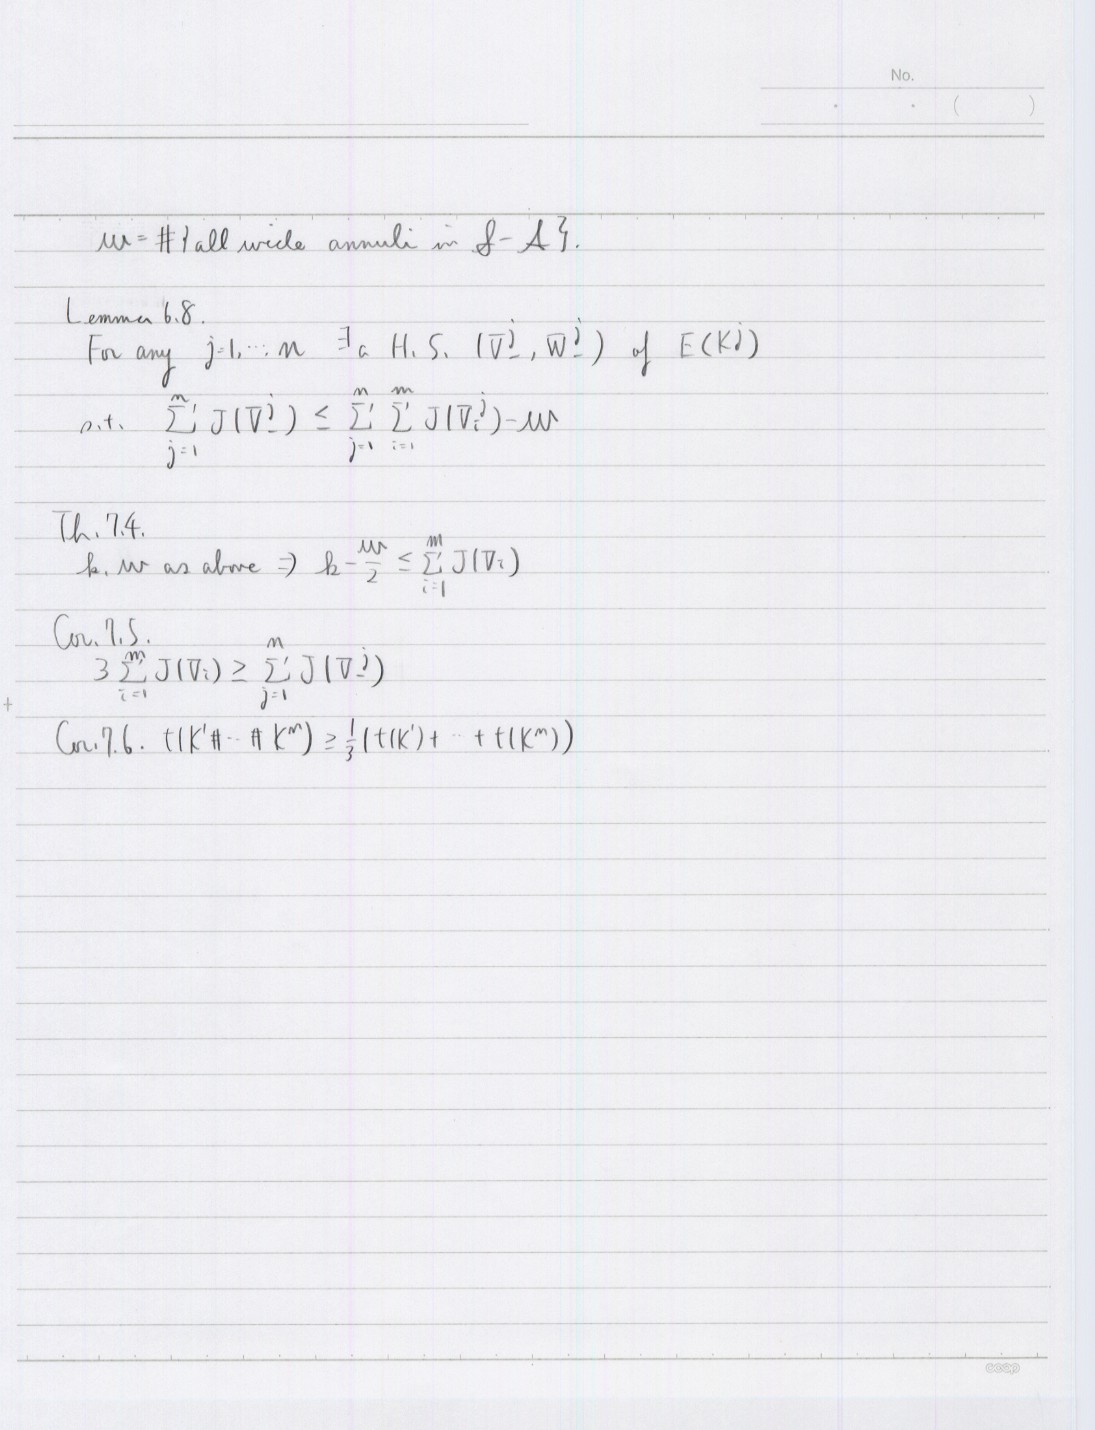 No.
( )
w = #{all wide annuli in S-A}.
Lemma 6.8.
For any j=1,…n ∃a H.S. (V_-^j, W_-^j) of E(K^j)
s.t. Σ_{j=1}^{n} J(V_-^j) ≤ Σ_{j=1}^{n} Σ_{i=1}^{m} J(V_i^j) - w
Th. 7.4.
k, w as above ⇒ k - w/2 ≤ Σ_{i=1}^{m} J(V_i)
Cor. 7.5.
3 Σ_{i=1}^{m} J(V_i) ≥ Σ_{j=1}^{n} J(V_-^j)
Cor. 7.6. t(K'#··#K^n) ≥ 1/3 (t(K')+ ·· + t(K^n))
coop